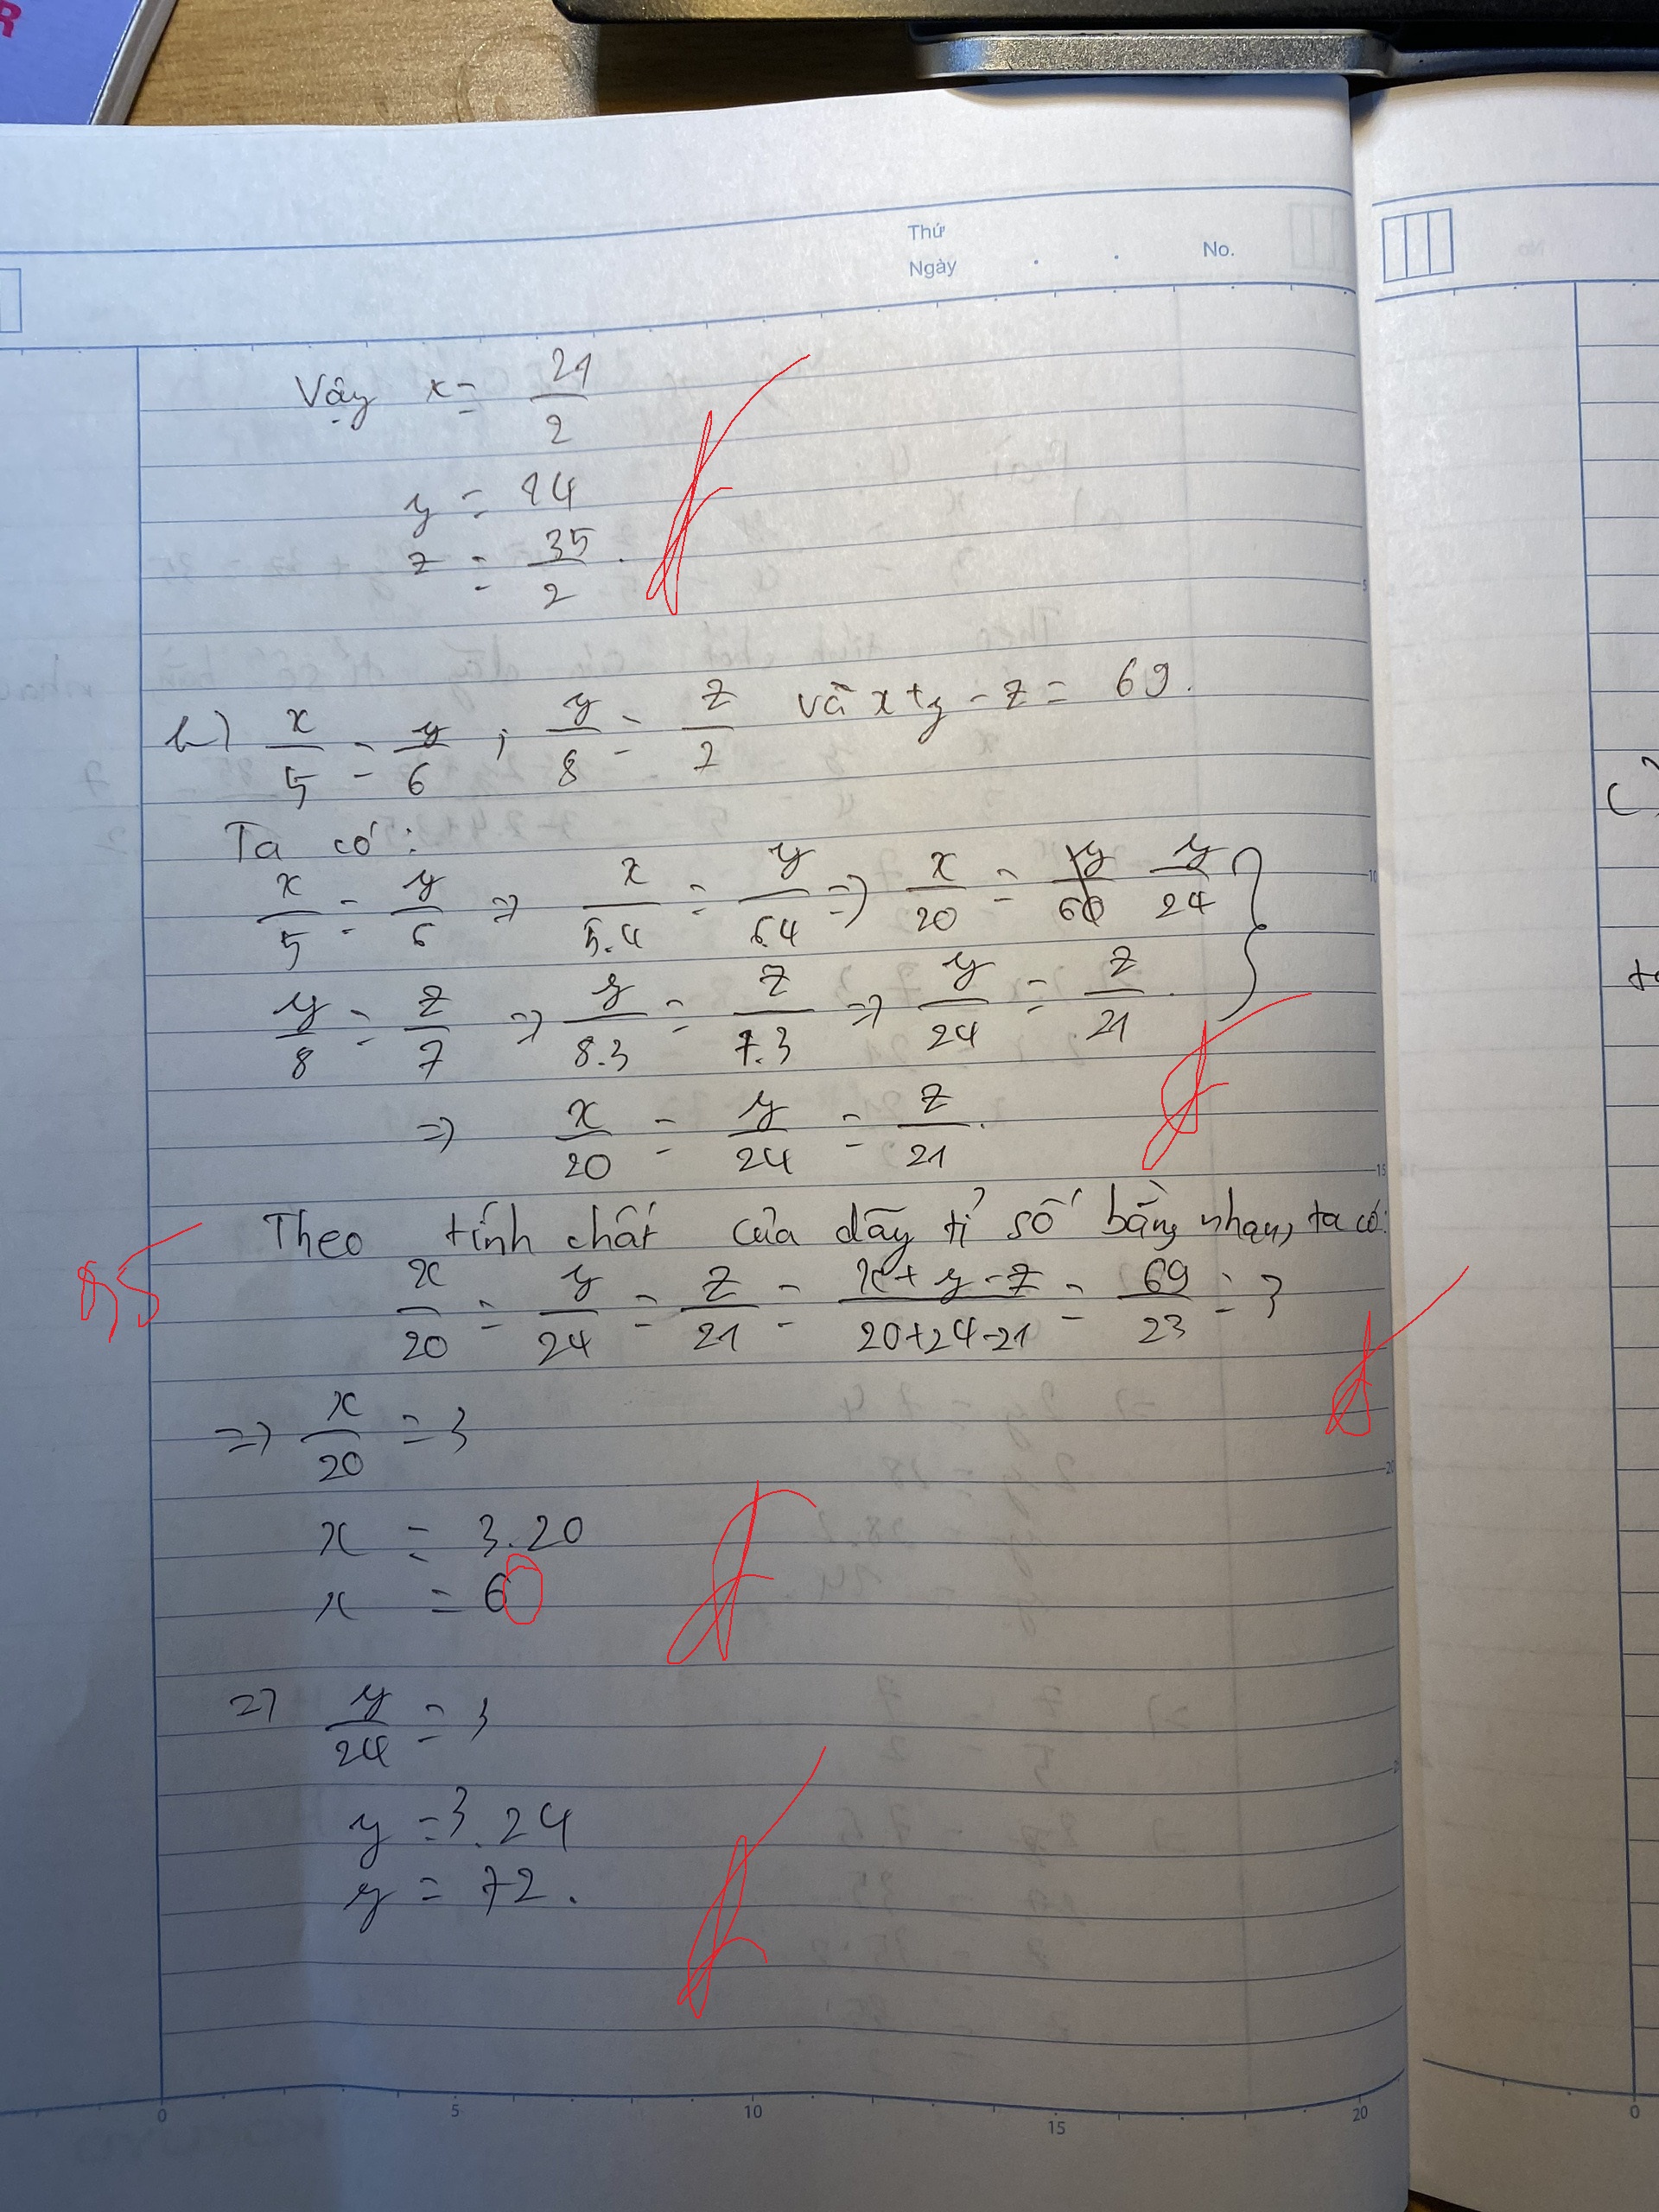 R
Thứ
Ngày . . No.
Vậy x = 21/2
y = 14
z = 35/2.
b) x/5 = y/6 ; y/8 = z/7 và x + y - z = 69.
Ta có:
x/5 = y/6 => x/5.4 = y/6.4 => x/20 = y/24
y/8 = z/7 => y/8.3 = z/7.3 => y/24 = z/21.
=> x/20 = y/24 = z/21.
Theo tính chất của dãy tỉ số bằng nhau, ta có:
x/20 = y/24 = z/21 = x+y-z/20+24-21 = 69/23 = 3
=> x/20 = 3
x = 3.20
x = 60
=> y/24 = 3
y = 3.24
y = 72.
0 5 10 15 20
0
5
10
15
20